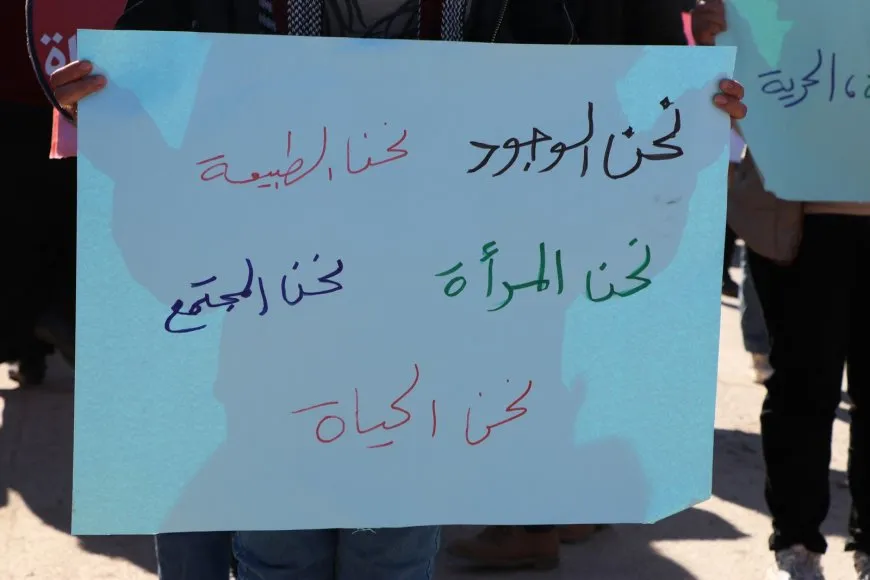 نحن الوجود
نحنا الطبيعة
نحن المرأة
نحن المجتمع
نحن الحياة
، الحرية